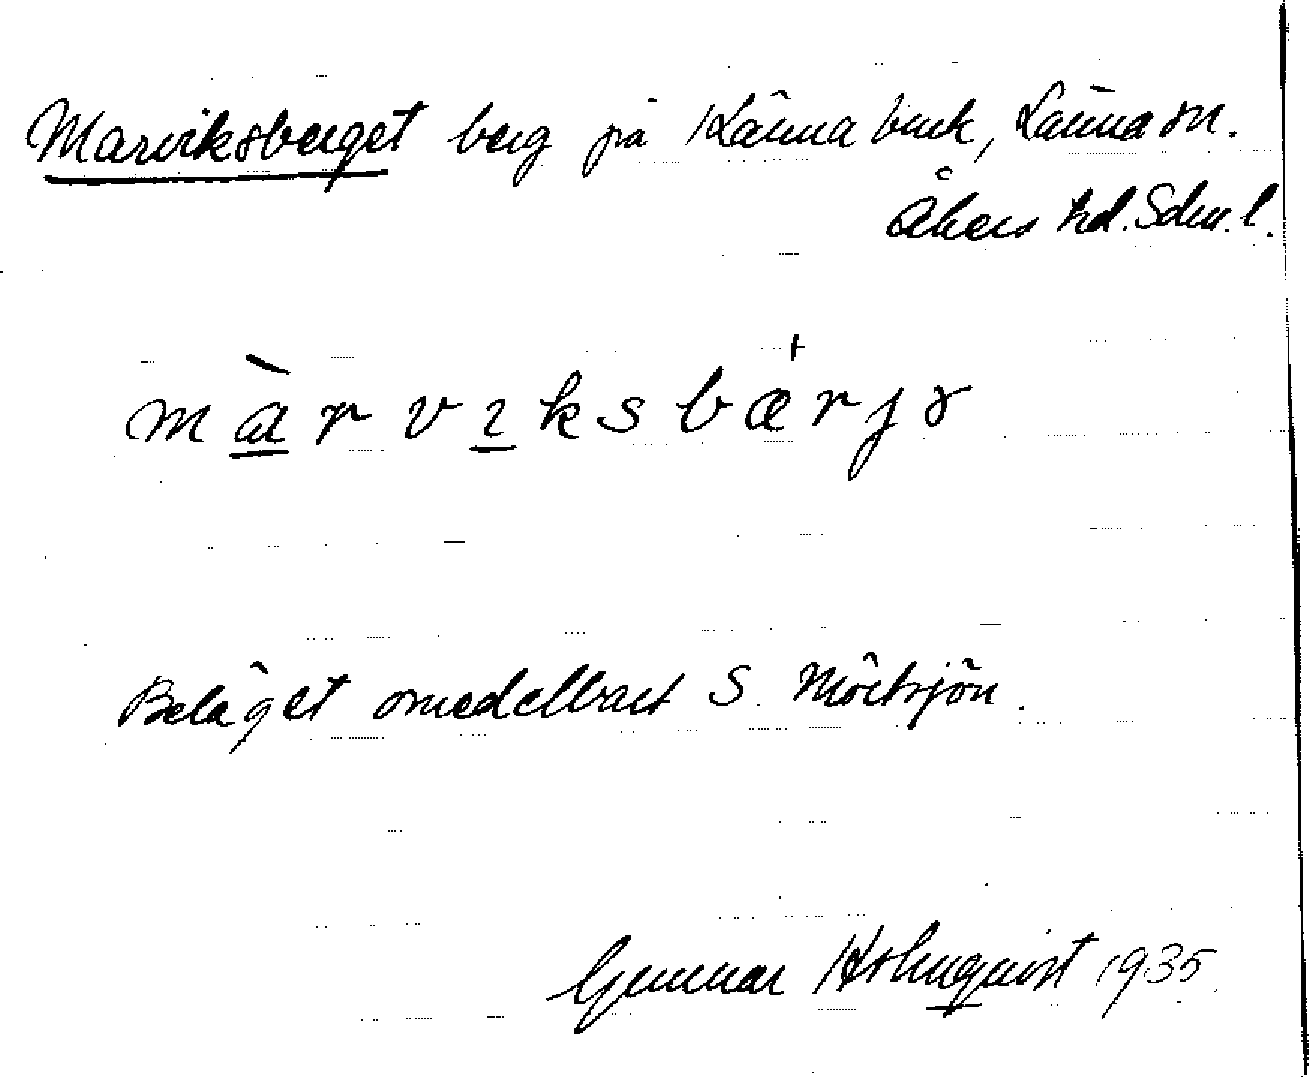 Marviksberget berg på Länna bruk, Länna sn.
Åkers hd. Sdm. l.
màrvıksbærjɤ
Beläget omedelbart S. Mörtsjön.
Gunnar Holmquist 1935